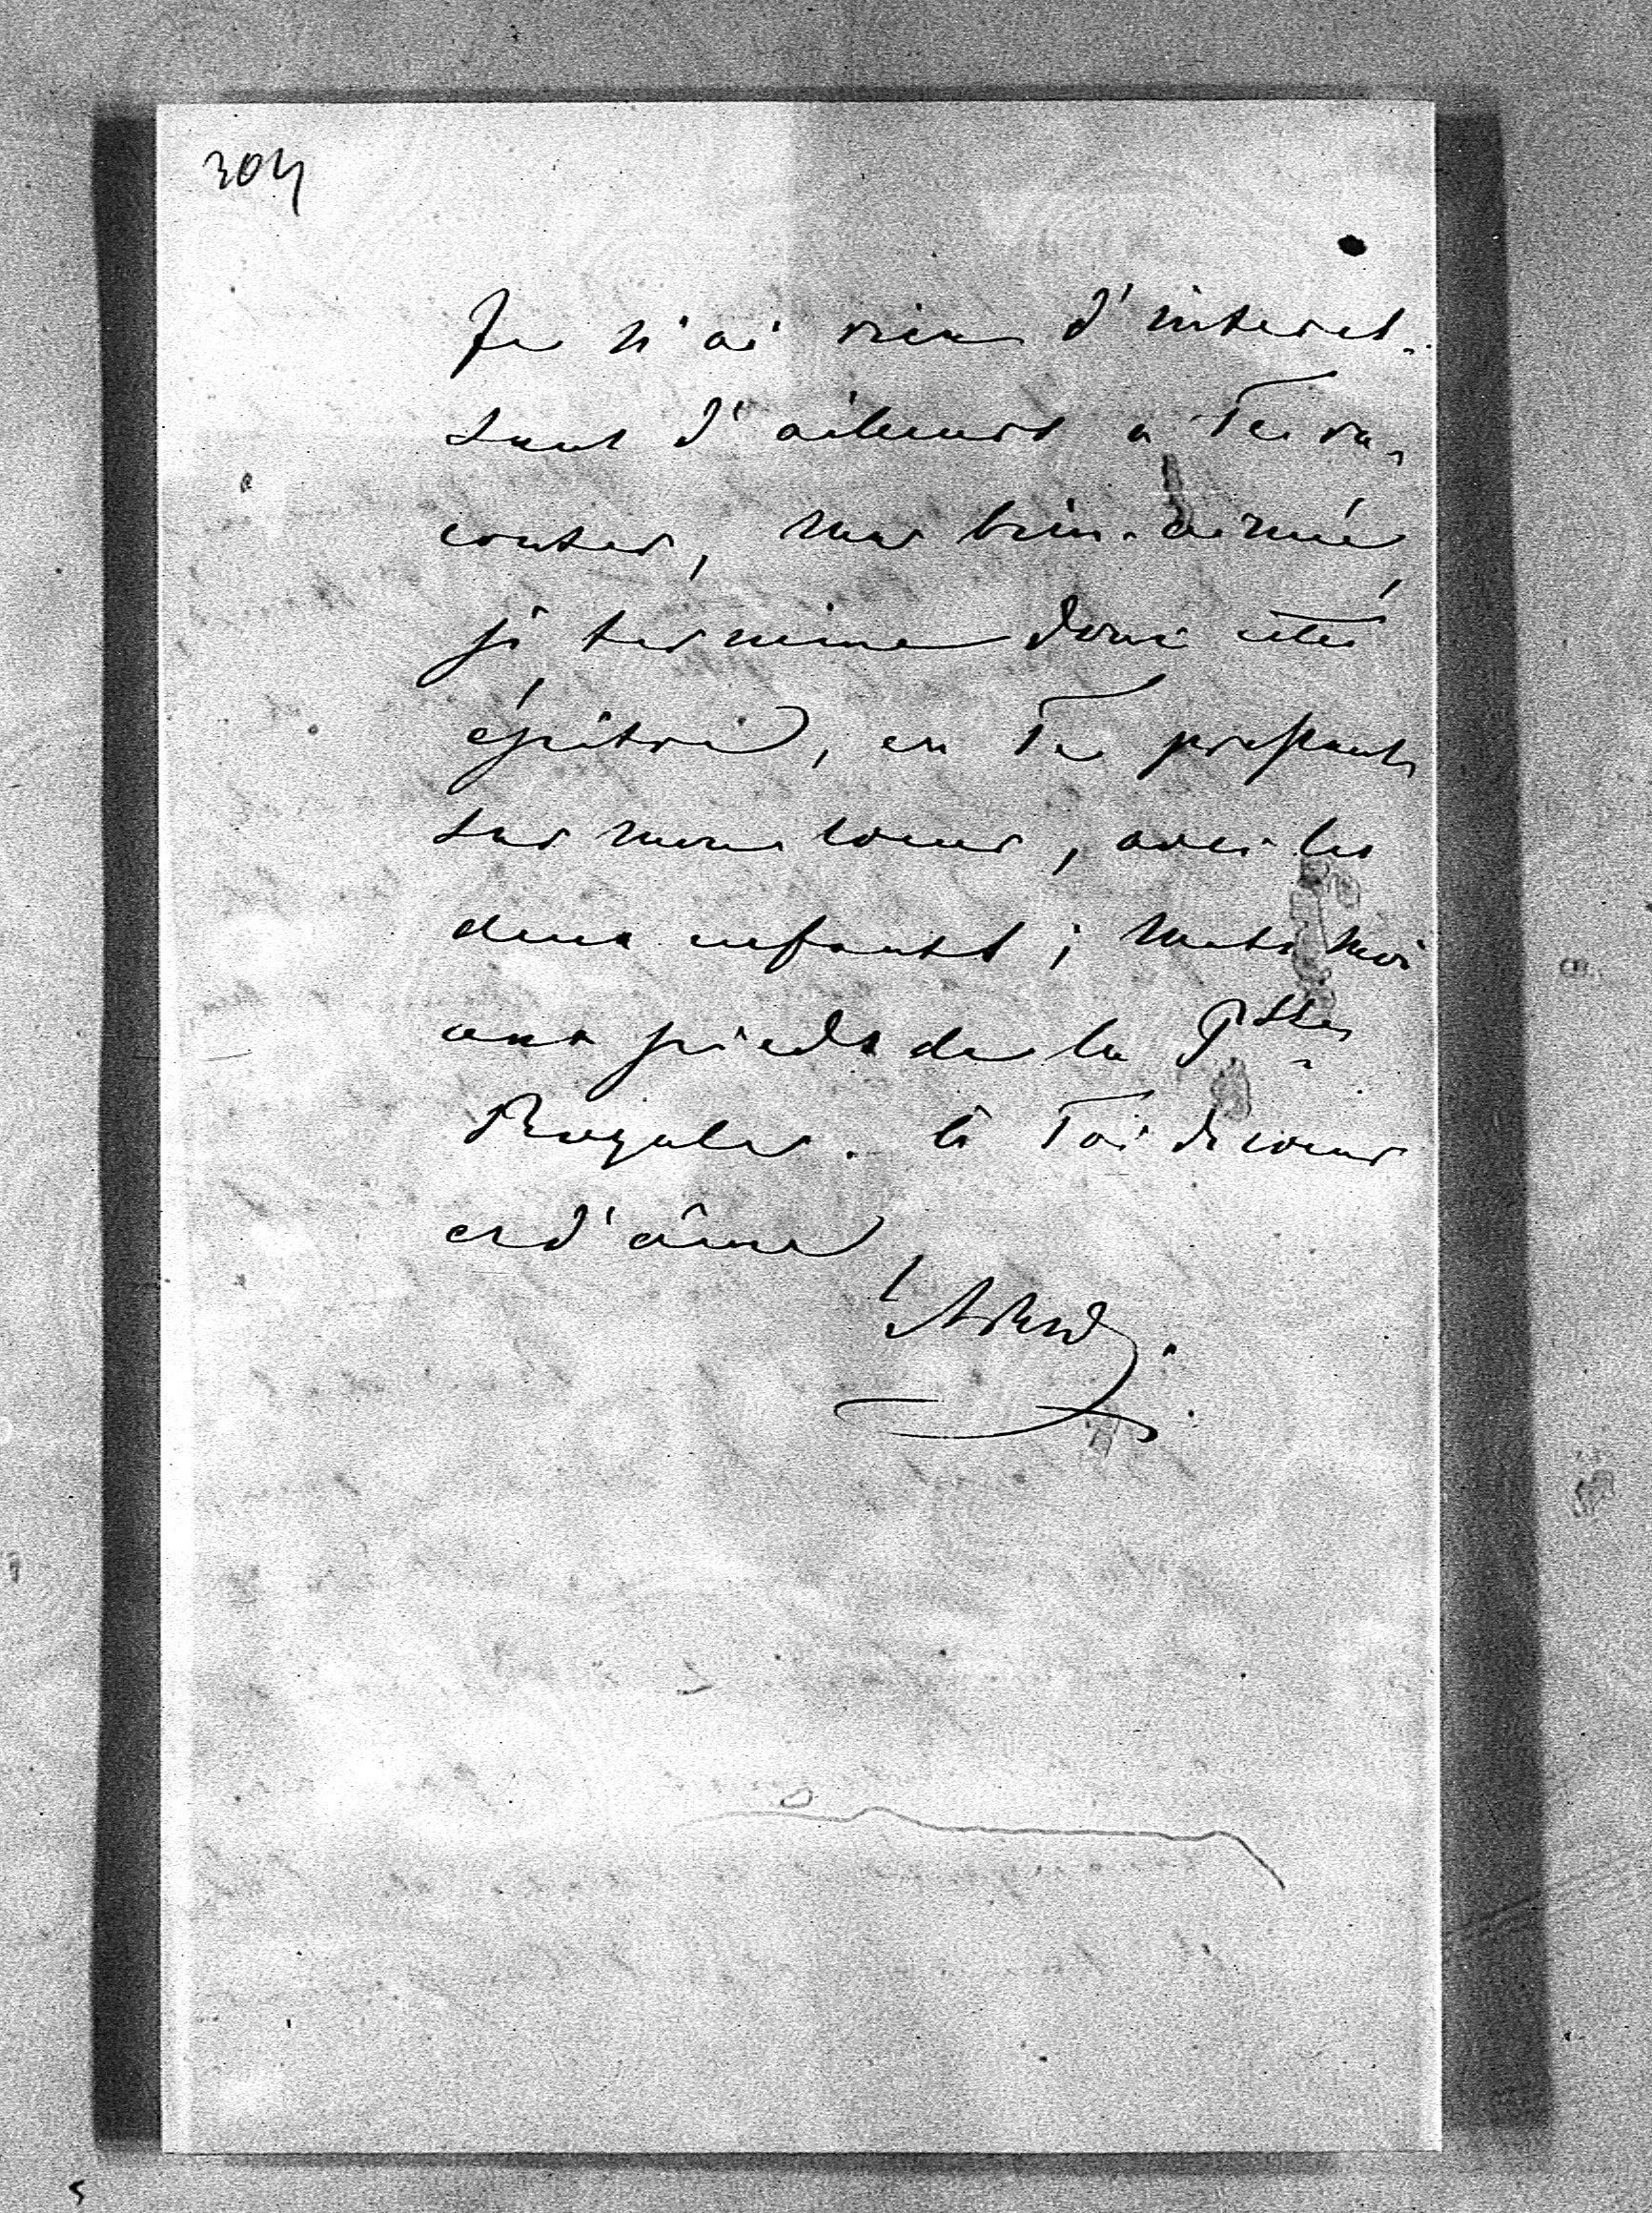 304
Je n'ai rien d'interes-
sant d'ailleurs a Te ra-
conter, ma bien-aimée
je termine donc cette
épitre, en Te pressant
sur mon coeur, avec les
deux enfants; mets moi
aux pieds de la Psse
Royale. à Toi de coeur
et d'âme